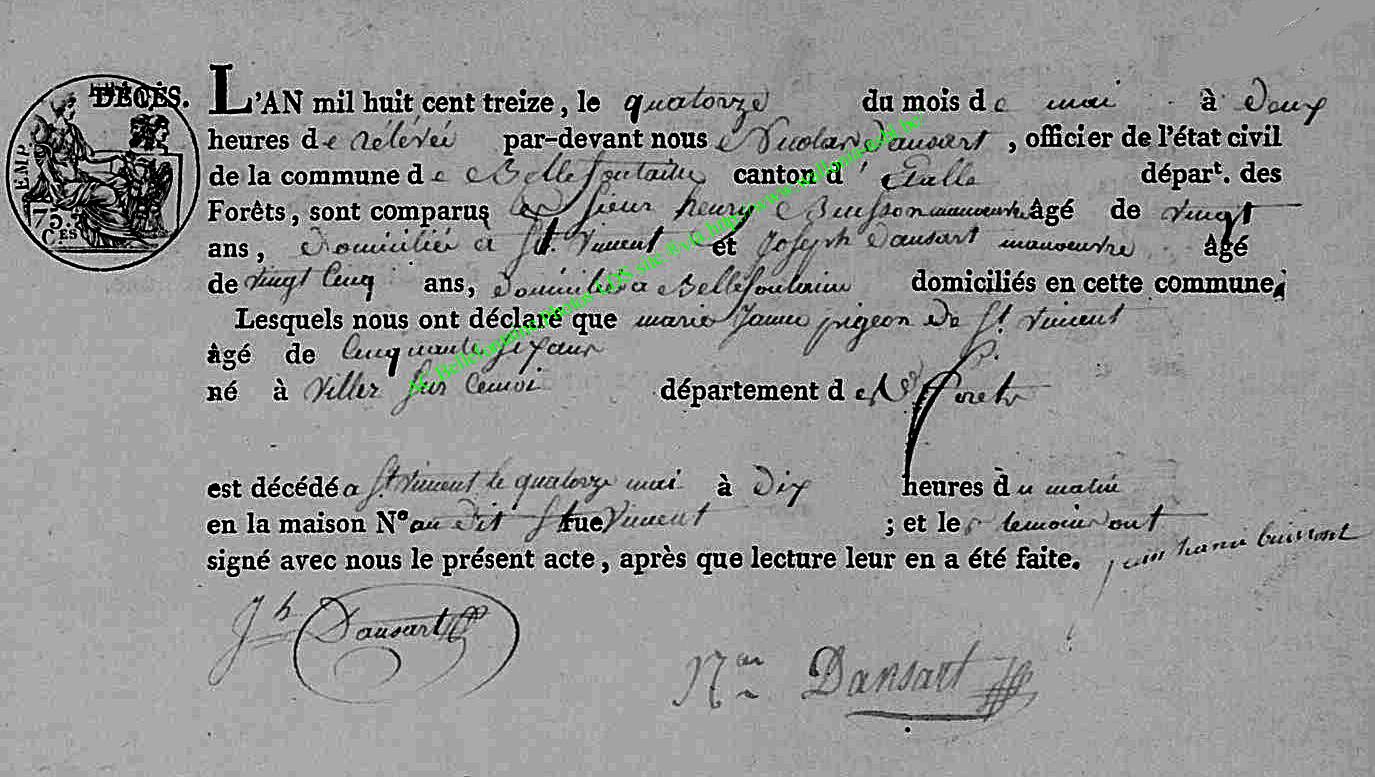 DÉCÈS. L'AN mil huit cent treize, le quatorze du mois de mai à deux
heures de rélévéé par-devant nous Nicolas Dansart, officier de l'état civil
de la commune de Bellefontaine canton d' Etalle départ. des
Forêts, sont comparus le Sieur henry Buisson manoeuvre âgé de vingt
ans, domicilié à St. Vincent et Joseph Dansart manoeuvre âgé
de vingt cinq ans, domicilié a Bellefontaine domiciliés en cette commune;
Lesquels nous ont déclaré que marie Janne pigeon de St Vincent
âgé de cinquante
né à Viller sur Cemoi département de forets
est décédé a St Vincent le quatorze mai à dix heures du matin
en la maison N° au dit St rue Vincent ; et les temoins ont
signé avec nous le présent acte, après que lecture leur en a été faite.
Jh Dansart
Nas Dansart
EMP.
75
CES
AC Bellefontaine Photos LDS site